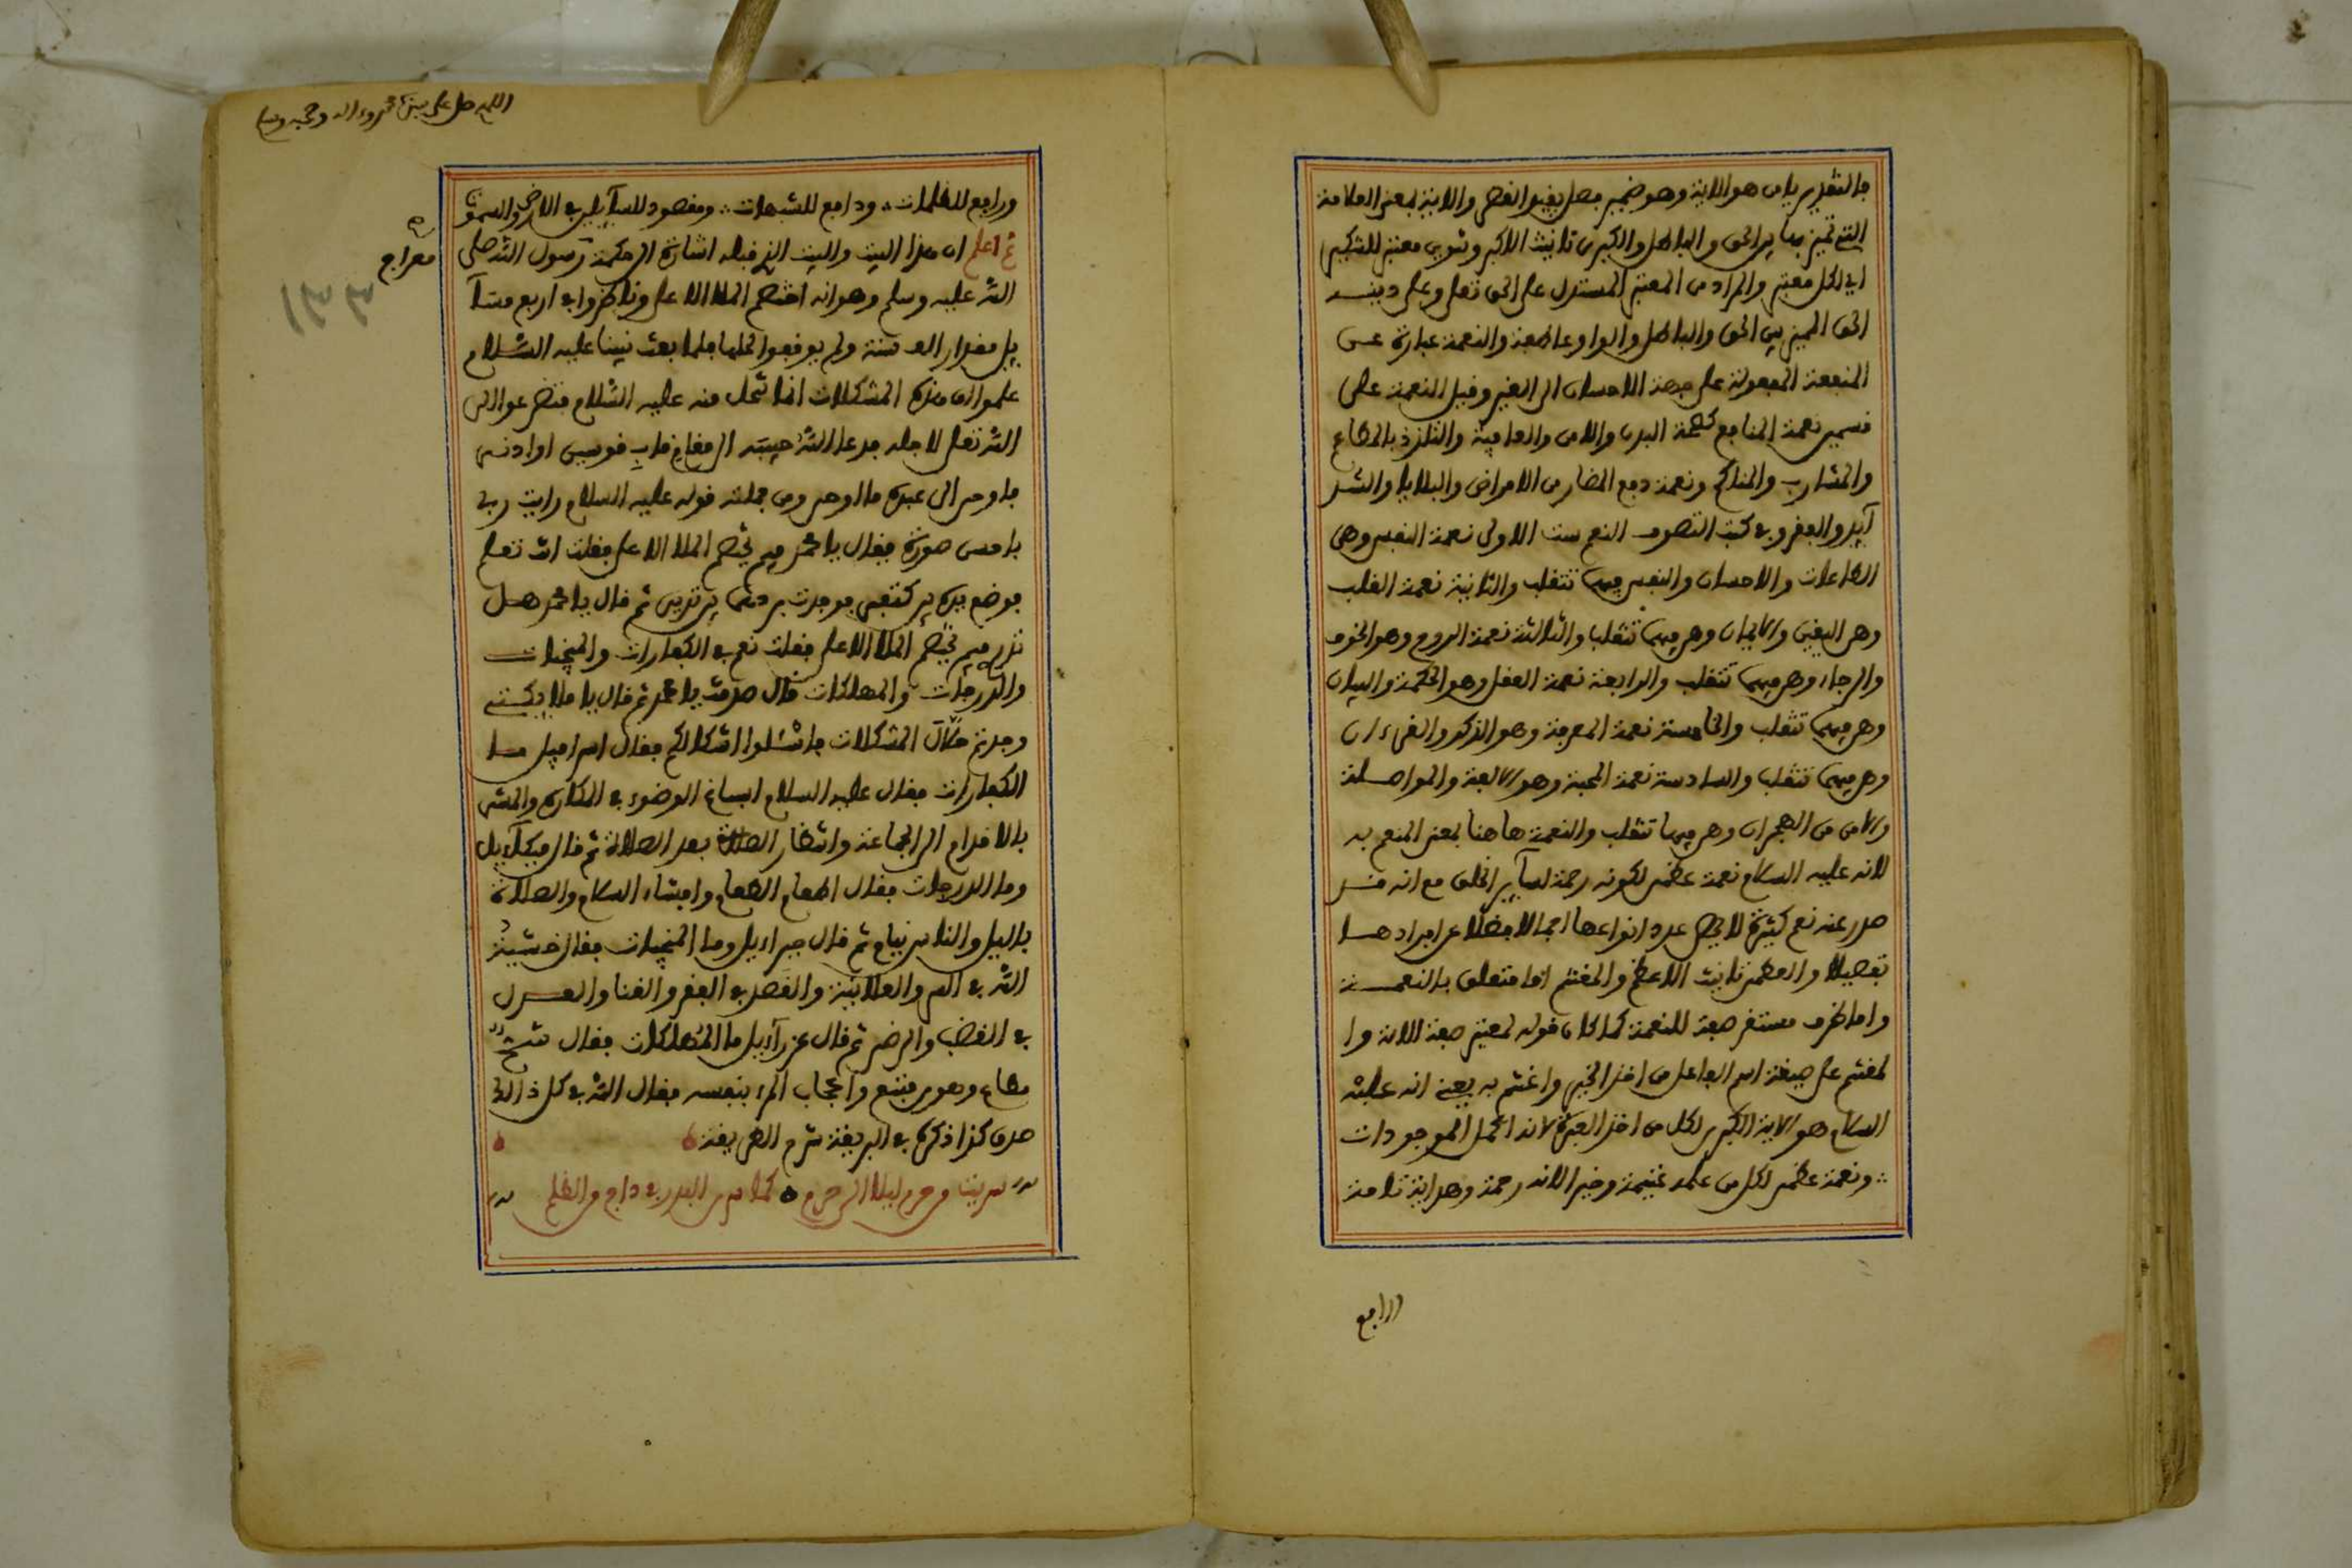 بالتقدير يامن هو الاية وهو ضمير فصل يفيد القصر والاية بمعنى العلامة
التي تميز بها بين الحق والباطل والكبرى تانيث الاكبر وتنوين معتبر للتكثير
اي لكل معتبر والمراد من المعتبر المستدل على الحق تعلى وعلى دينه
الحق المميز بين الحق والباطل والواو عاطفة والنعمة عبارة عن
المنفعة المفعولة على جهة الاحسان الى الغير وقيل النعمة على
قسمين نعمة المنافع كصحة البدن والامن والعافية والتلذذ بالمطاعم
والمشارب والمناكح ونعمة دفع المضار من الامراض والبلايا والشد
آيد والفقر وفي كتب التصوف النعم ست الاولى نعمة النفس وهي
الطاعات والاحسان والنفس فيهما تتقلب والثانية نعمة القلب
وهي اليقين والايمان وهي فيهما تتقلب والثالثة نعمة الروح وهو الخوف
والرجاء وهي فيهما تتقلب والرابعة نعمة العقل وهو الحكمة والبيان
وهي فيهما تتقلب والخامسة نعمة المعرفة وهو الذكر والقرءان
وهي فيهما تتقلب والسادسة نعمة المحبة وهو الالفة والمواصلة
والامن من الهجران وهي فيها تتقلب والنعمة هاهنا بمعنى المنعم به
لانه عليه السلام نعمة عظمى لكونه رحمة لسآير الخلق مع انه قد
صدر عنه نعم كثيرة لا يحصى عدد انواعها اجمالا فضلا عن افرادها
تفصيلا والعظمى تانيث الاعظم والمغتنم اما متعلق بالنعمة
واما ظرف مستقر صفة للنعمة كما كان قوله لمعتبر صفة الاية وا
لمغتنم على صيغة اسم الفاعل من اخذ الخير واغتنم به يعني انه عليه
السلام هو الاية الكبرى لكل من اخذ العبرة لانه اكمل الموجودات
ونعمة عظمى لكل من عده غنيمة وخيرا لانه رحمة وهداية تامة
الرابع
اللهم صل على سيدنا محمد وءاله وصحبه وسلم
ورافع للظلمات ودافع للشبهات ومقصود للسآيلين في الارض والسموات
ثم اعلم ان هذا البيت والبيت الذي قبله اشارة الى حكمة رسول الله صلى
معراج
الله عليه وسلم وهو انه اختصم الملا الاعلى وناظروا في اربع مسآ
يل مقدار الف سنة ولم يوفقوا لحلها فلما بعث نبينا عليه السلام
علموا ان هذه المشكلات انما تحل منه عليه السلام فتضرعوا الى
الله تعلى لاجله فدعا الله حبيبه الى مقام قاب قوسين او ادنى
فاوحى الى عبده ما اوحى ومن جملته قوله عليه السلام رايت ربي
باحسن صورة فقال يا محمد فيم يختصم الملا الاعلى فقلت انت تعلم
فوضع يده بين كتفي فوجدت بردها بين ثديي ثم قال يا محمد هل
تدري فيم يختصم الملا الاعلى فقلت نعم في الكفارات والمنجيات
والدرجات والمهلكات قال صدقت يا محمد ثم قال يا ملايكتي
وجدتم حلال المشكلات فاسئلوا اشكالكم فقال اسرافيل ما
الكفارات فقال عليه السلام اسباغ الوضوء في المكاره والمشي
بالاقدام الى الجماعة وانتظار الصلاة بعد الصلاة ثم قال ميكآييل
وما الدرجات فقال اطعام الطعام وافشاء السلام والصلاة
باليل والناس نيام ثم قال جبراءيل وما المنجيات فقال خشية
الله في السر والعلانية والقصد في الفقر والغنا والعدل
في الغضب والرضى ثم قال عزرآءيل ما المهلكات فقال شح
مطاع وهوى متبع واعجاب المرء بنفسه فقال الله في كل ذالك
صدق كذا ذكره في البريقة شرح الطريقة
سريت من حرم ليلا الى حرم كما سرى البدر في داج من الظلم